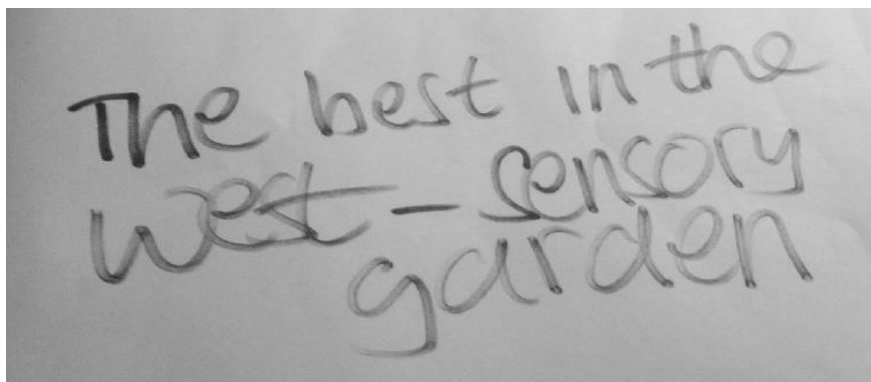 The best in the
west - sensory
garden